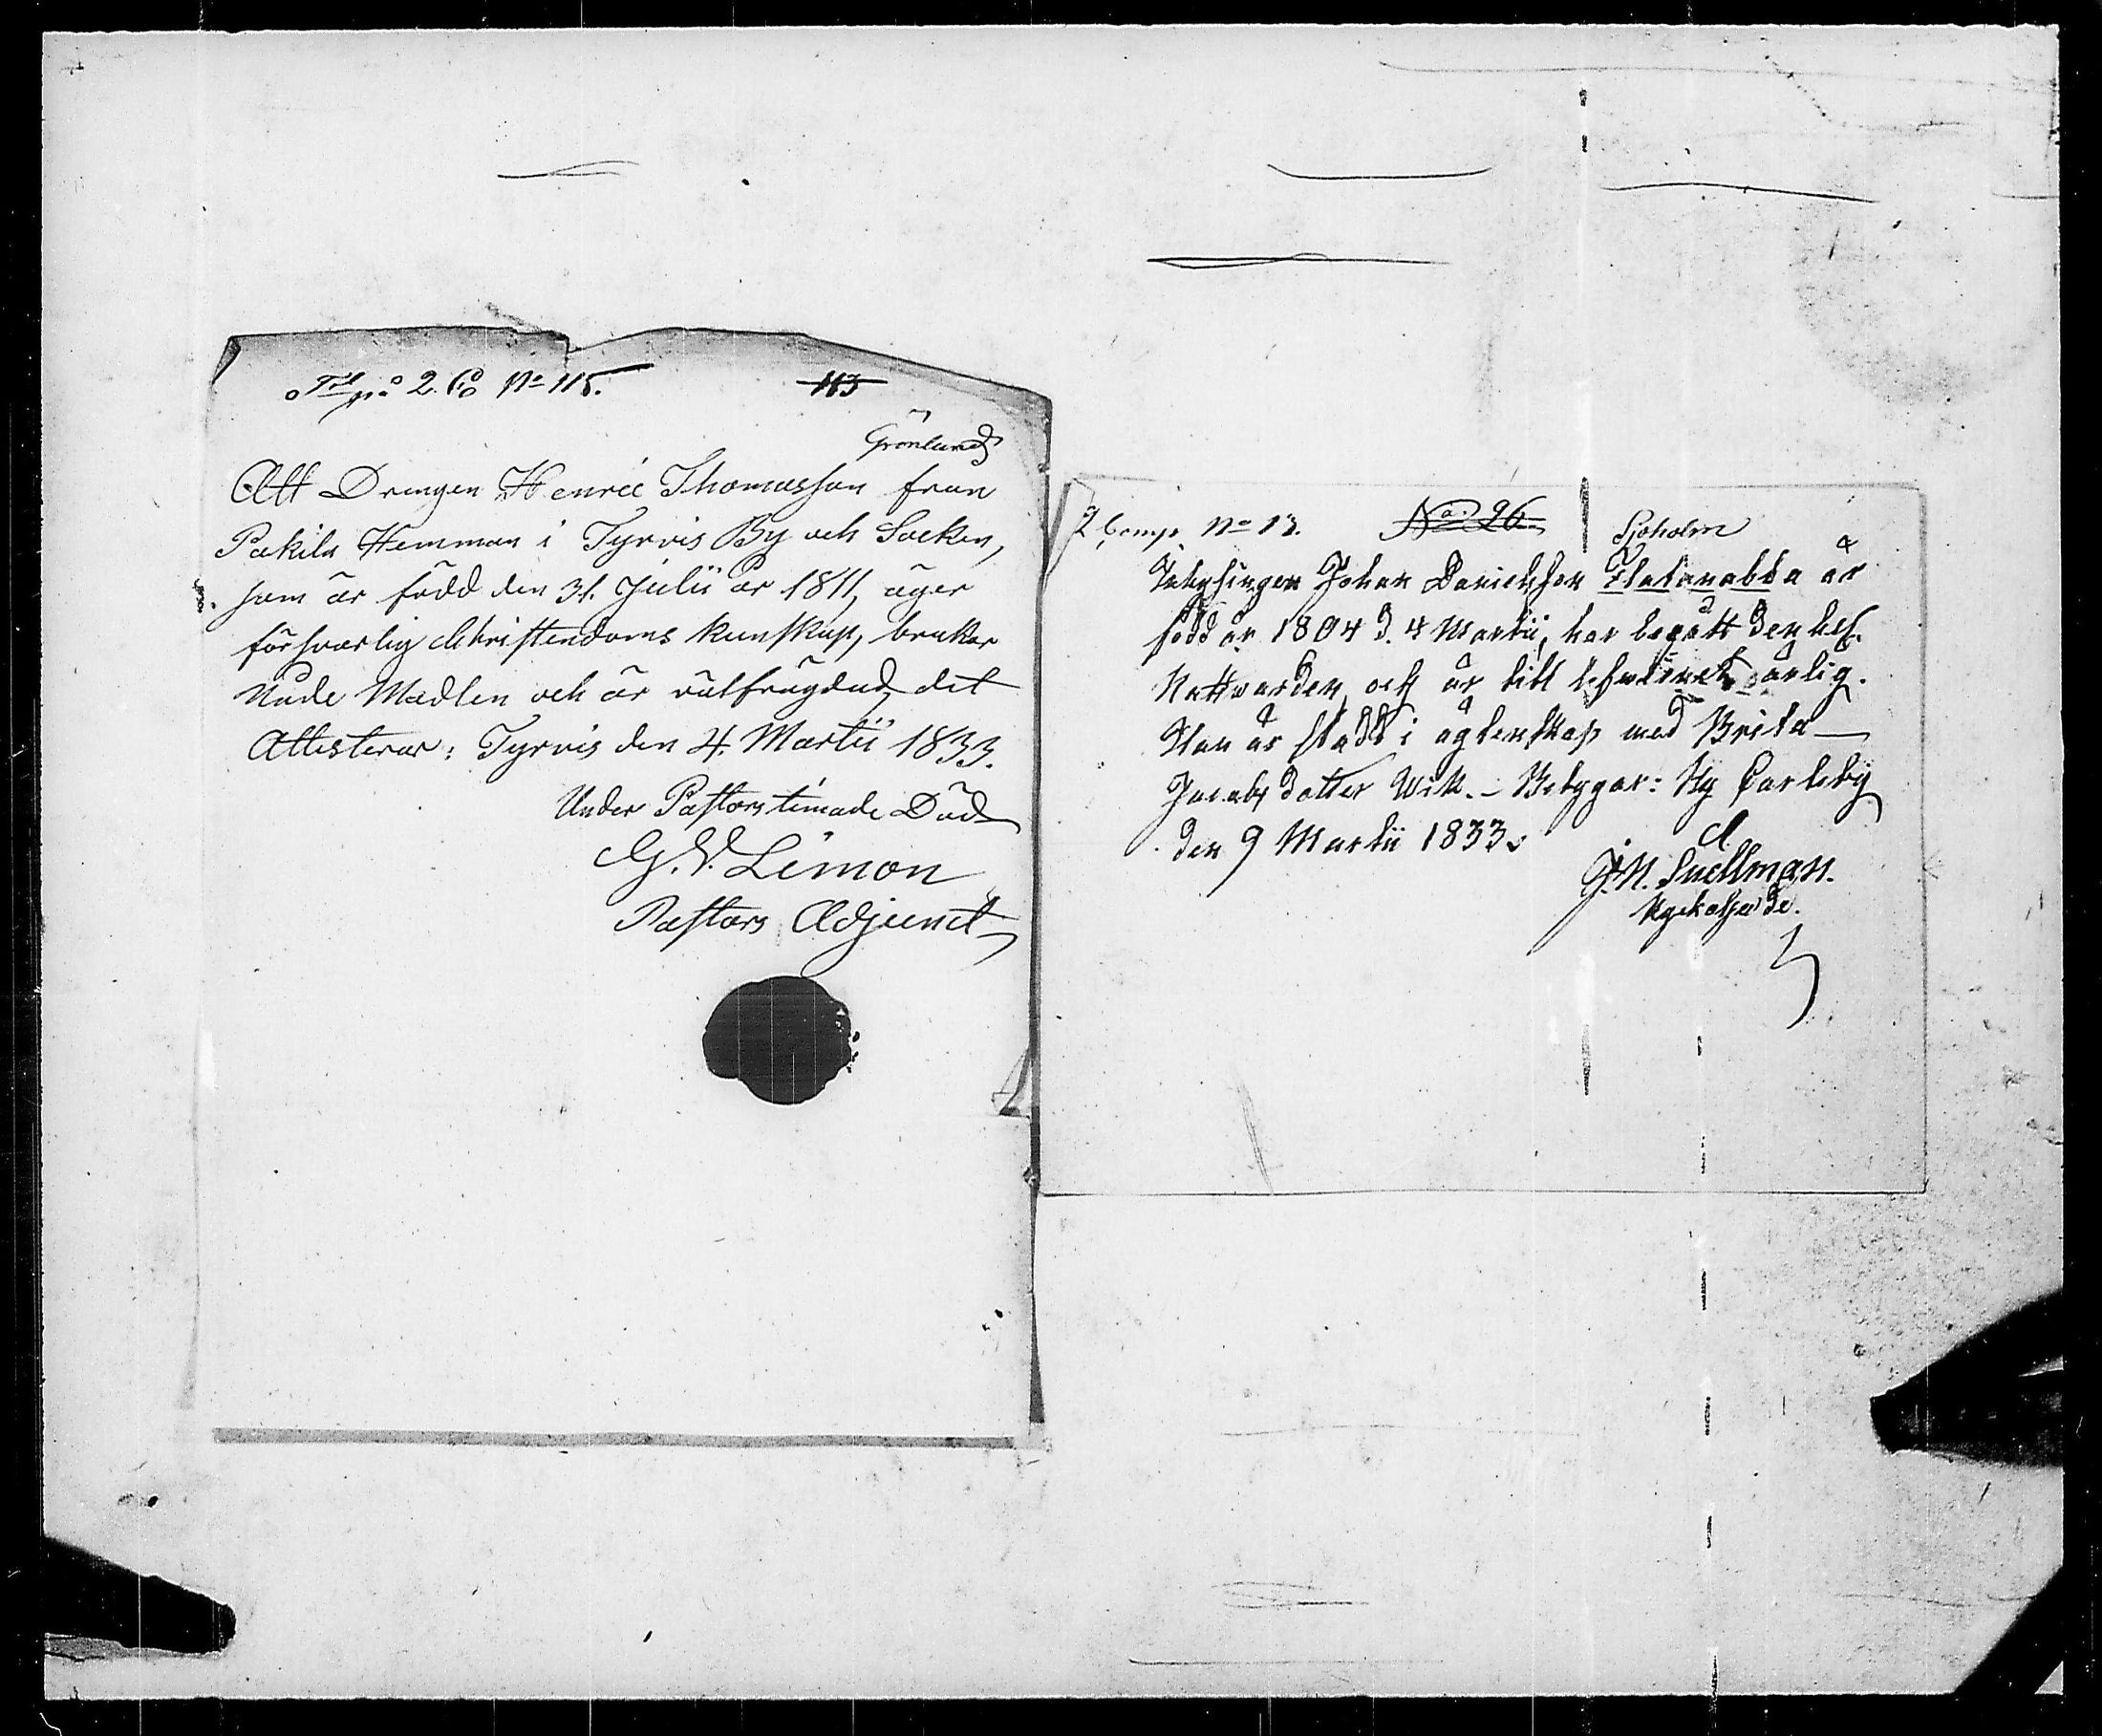 2. Co No 115.
113
Grönlund
Att Drengen Henric Thomasson från
Pakila Hemman i Tyrvis By och Socken,
som är född den 31. Julii år 1811, äger
försvarlig Christendoms kunskap, brukar
Nåde Medlen och är välfrägdad, det
Attesterar: Tyrvis den 4. Martii 1833.
Under Pastors timade Död
G. V. Limon
Pastors Adjunct
2 Comp. No 13.
No. 26.
Sjöholm
Johan Danielsson är
född år 1804 d. 4 Martii, har begått den hel.
Nattwarden, och är till lefwernet ärlig.
Han är stadd i ägtenskap med Brita
Jacobsdotter Wik. – Betygar: Ny Carleby
den 9 Martii 1833.
J. N. Snellman.